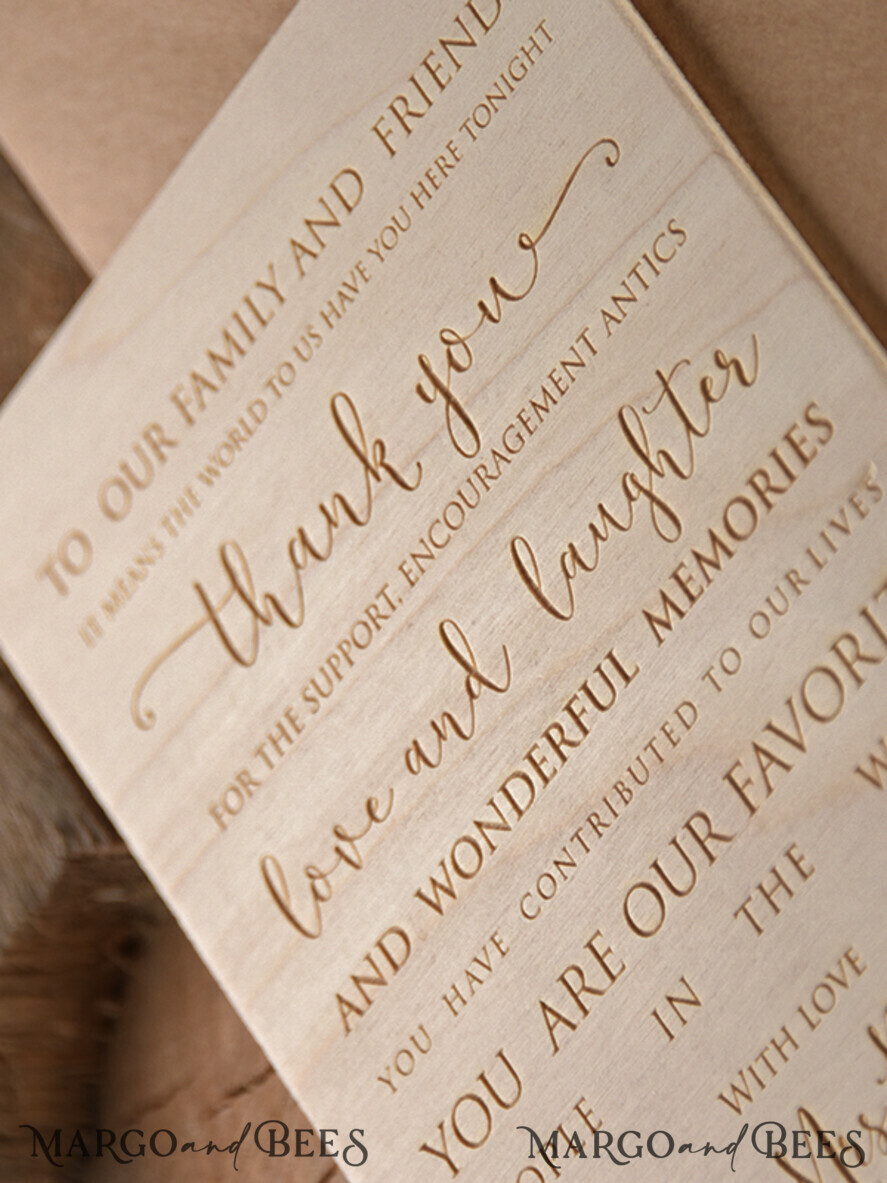 TO OUR FAMILY AND FRIEND
IT MEANS THE WORLD TO US HAVE YOU HERE TONIGHT
thank you
FOR THE SUPPORT, ENCOURAGEMENT ANTICS
love and laughter
AND WONDERFUL MEMORIES
YOU HAVE CONTRIBUTED TO OUR LIVES
YOU ARE OUR FAVORIT
IN THE
WITH LOVE
MARGO and BEES
MARGO and BEES